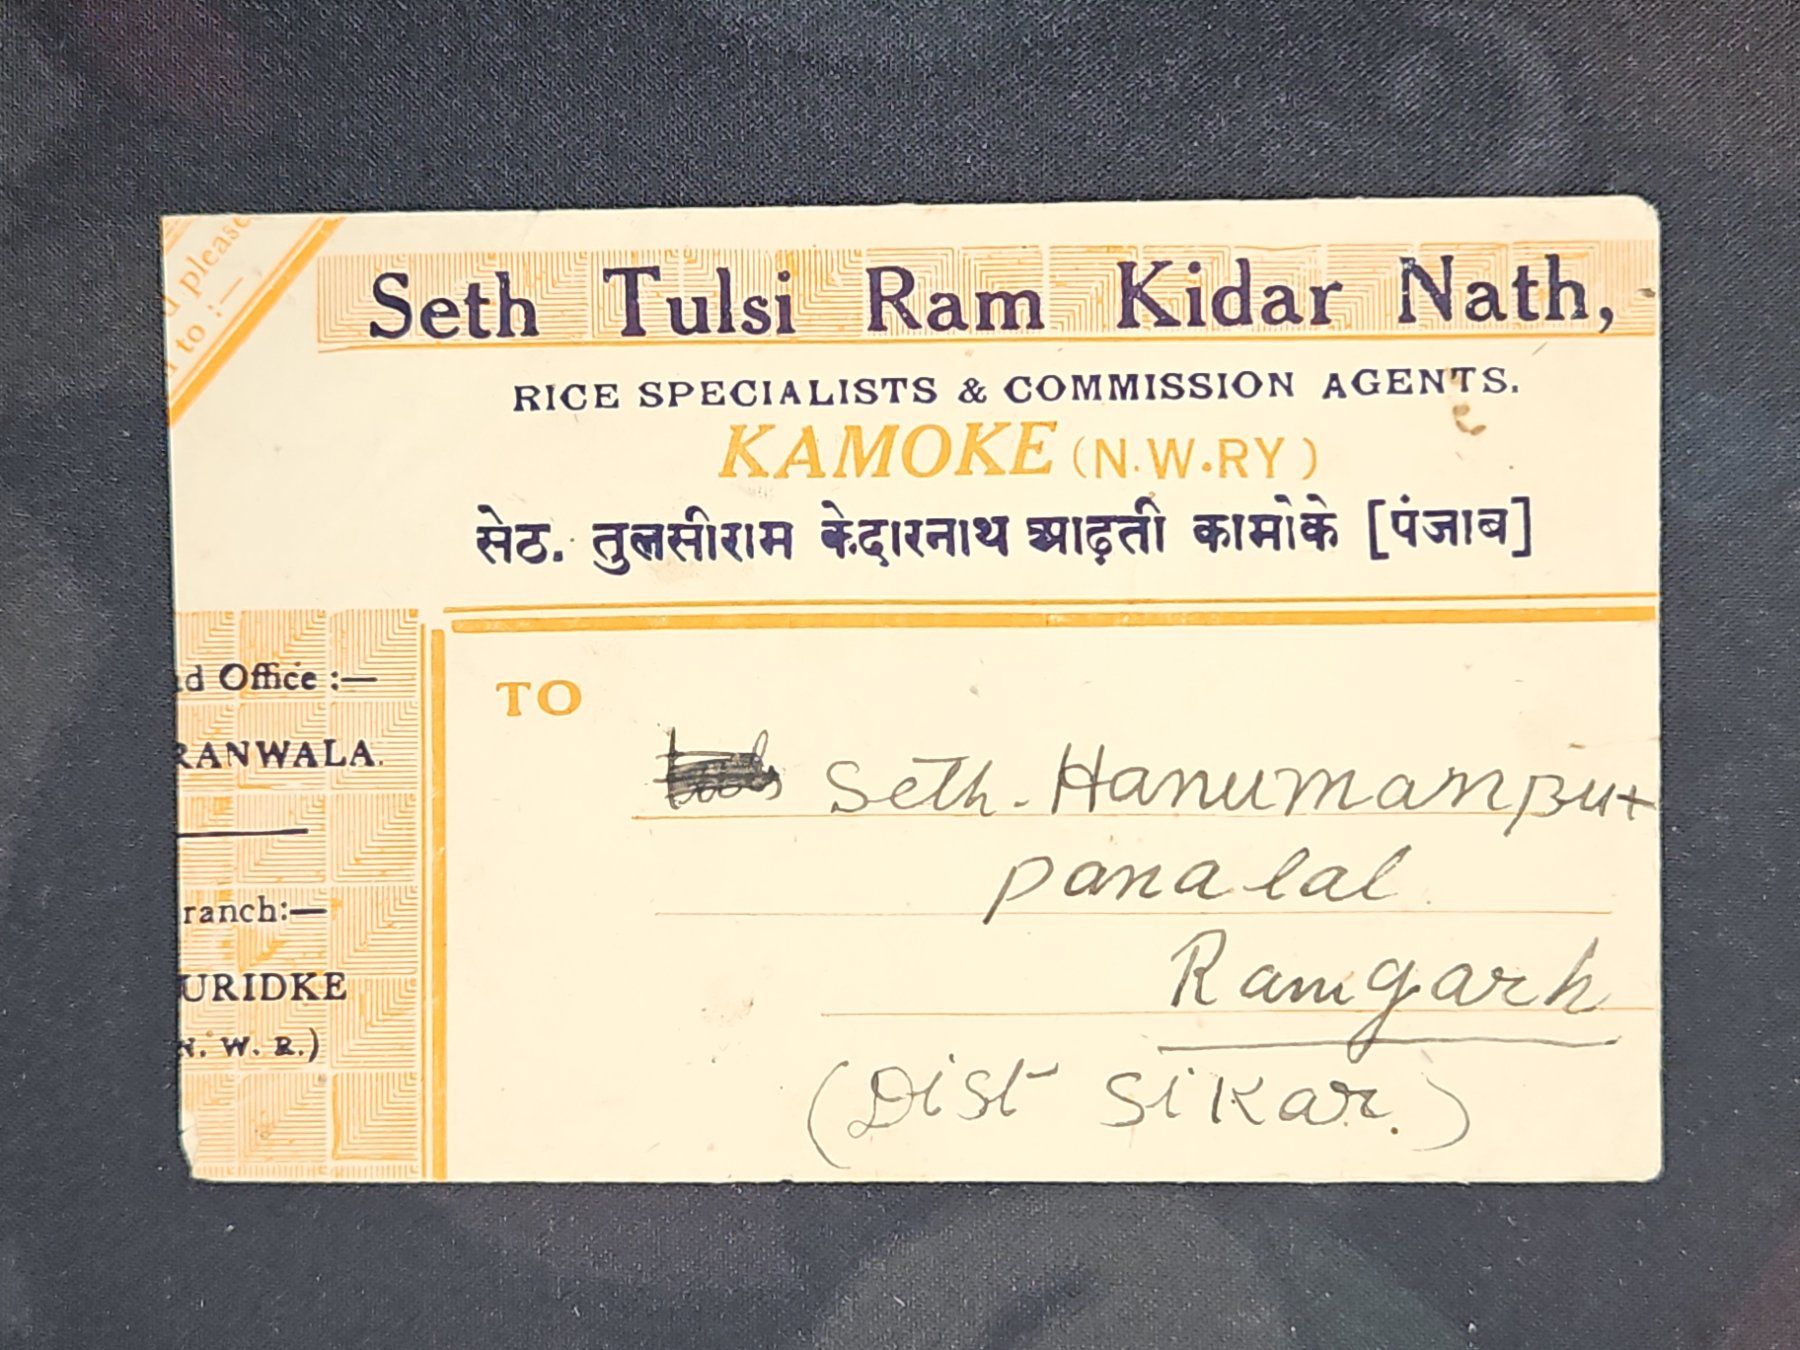 d please
to :—
Seth Tulsi Ram Kidar Nath,
RICE SPECIALISTS & COMMISSION AGENTS.
KAMOKE (N.W.RY)
सेठ. तुलसीराम केदारनाथ आढ़ती कामोके [पंजाब]
d Office :—
RANWALA.
ranch:—
URIDKE
N. W. R.)
TO
Seth. Hanumanput
panalal
Ramgarh
(Dist Sikar.)